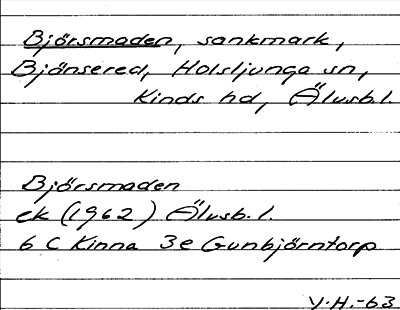 Björsmaden, sankmark,
Bjönsered, Holsljunga sn,
Kinds hd, Älvsb.l.
Björsmaden
ek (1962) Älvsb.l.
6 C Kinna 3e Gunbjörntorp
V.H.-63